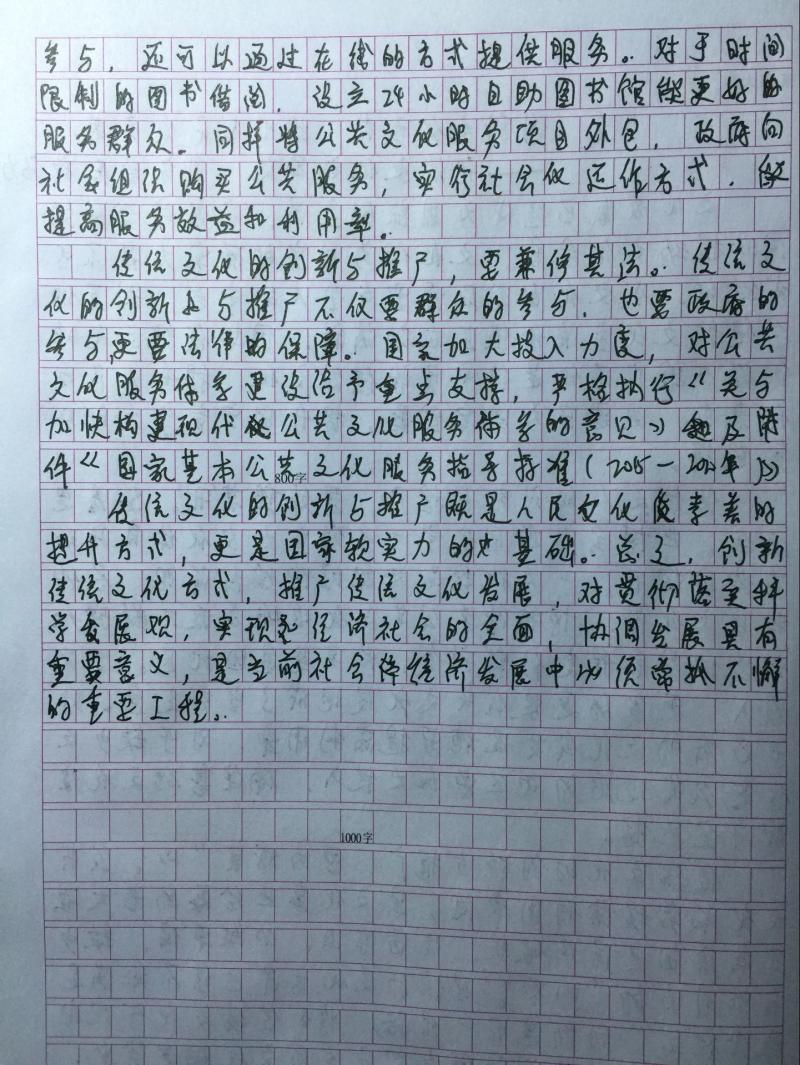 参与，还可以通过在线的方式提供服务。对于时间
限制的图书借阅，设立24小时自助图书馆能更好的
服务群众。同样将公共文化服务项目外包，政府向
社会组织购买公共服务，实行社会化运作方式，
提高服务效益和利用率。
传统文化的创新与推广，要兼修其法。传统文
化的创新与推广不仅要群众的参与，也要政府的
参与，更要法律的保障。国家加大投入力度，对公共
文化服务体系建设给予重点支持，严格执行《关与
加快构建现代公共文化服务体系的意见》及附
件《国家基本公共文化服务指导标准（2015－2020年）》
800字
传统文化的创新与推广既是人民文化素养的
提升方式，更是国家软实力的基础。总之，创新
传统文化方式，推广传统文化发展，对贯彻落实科
学发展观，实现经济社会的全面，协调发展具有
重要意义，是当前社会体统济发展中必须常抓不懈
的重要工程。
1000字